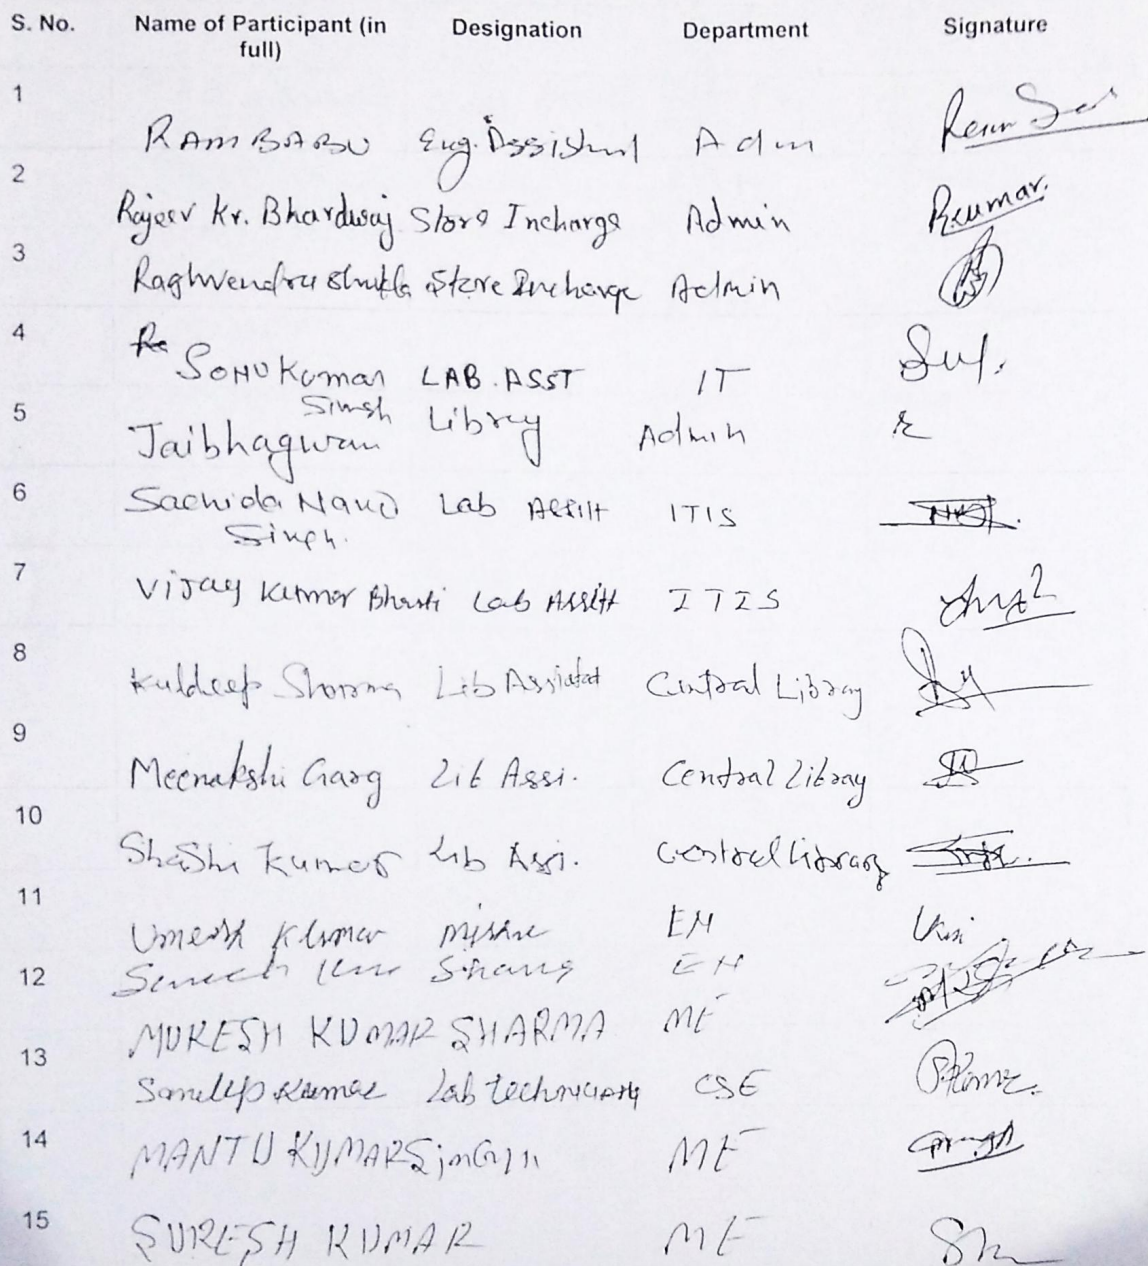 S. No. Name of Participant (in full) Designation Department Signature
1
RAM BABU Eng. Assistant Adm
2
Rajeev Kr. Bhardwaj Store Incharge Admin Rkumar.
3
Raghvendra Shukla Store Incharge Admin
4
Sonu Kumar Singh LAB. ASST IT
5
Jaibhagwan Library Admin
6
Sachida Nand Singh. Lab Assitt ITIS
7
Vijay Kumar Bharti Lab Assitt ITIS
8
Kuldeep Sharma Lib Assistat Central Library
9
Meenakshi Garg Lib Assi. Central Library
10
Shashi Kumar Lib Assi. Central Library
11
Umesh Kumar Mishra EH
12
EH
MUKESH KUMAR SHARMA ME
13
Sandeep Kumar Lab technician CSE
14
MANTU KUMAR Singh ME
15
SURESH KUMAR ME